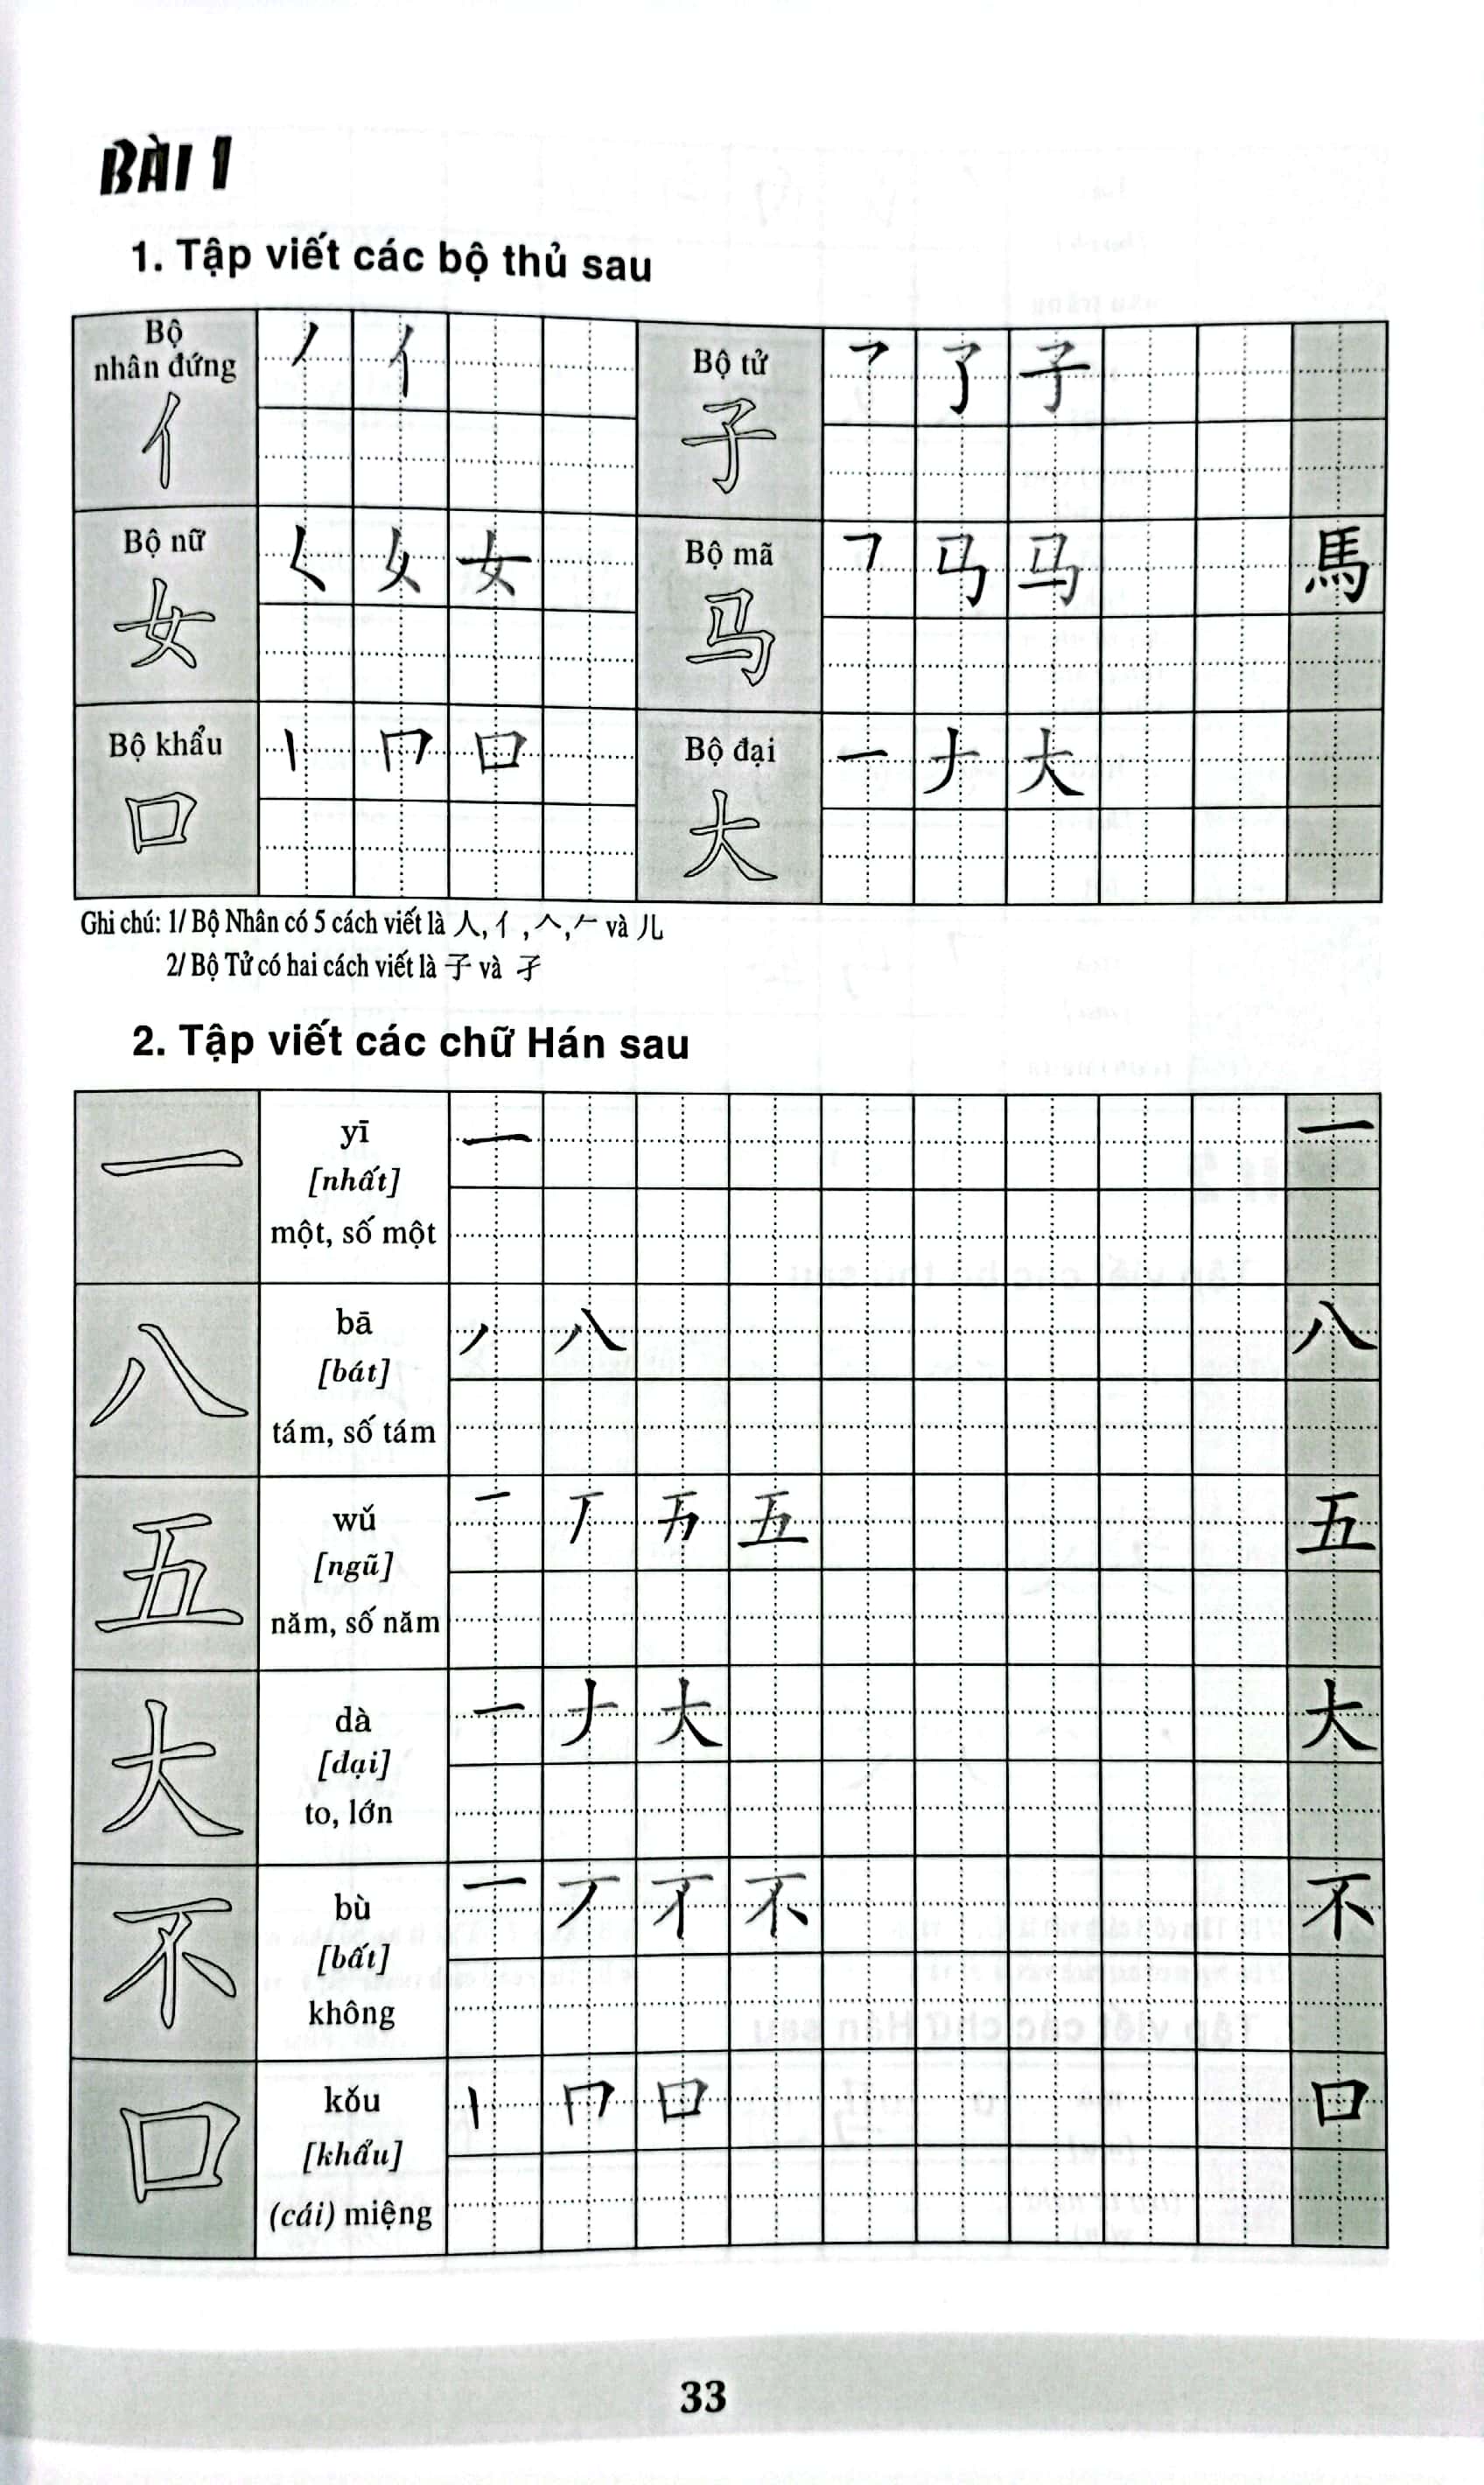 BÀI 1
1. Tập viết các bộ thủ sau
Bộ nhân đứng 亻 丿 亻
Bộ tử 子 了 子
Bộ nữ 女 𡿨 女
Bộ mã 马 马 馬
Bộ khẩu 口 丨 冂 口
Bộ đại 大 一 ナ 大
Ghi chú: 1/ Bộ Nhân có 5 cách viết là 人, 亻, 𠆢, 𠂉 và 儿
2/ Bộ Tử có hai cách viết là 子 và 孑
2. Tập viết các chữ Hán sau
一 yī 一 一
[nhất]
một, số một
八 bā 丿 八 八
[bát]
tám, số tám
五 wǔ 一 丅 五 五
[ngũ]
năm, số năm
大 dà 一 ナ 大 大
[dại]
to, lớn
不 bù 一 丆 不 不
[bất]
không
口 kǒu 丨 冂 口 口
[khẩu]
(cái) miệng
33